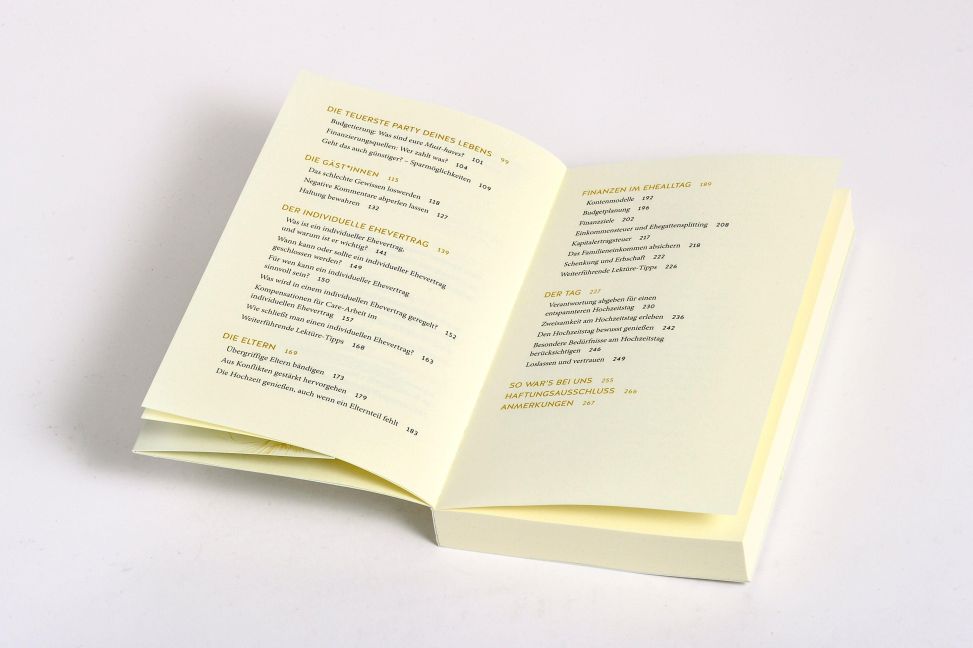 DIE TEUERSTE PARTY DEINES LEBENS 99
Budgetierung: Was sind eure Must-haves? 101
Finanzierungsquellen: Wer zahlt was? 104
Geht das auch günstiger? – Sparmöglichkeiten 109
DIE GÄST*INNEN 115
Das schlechte Gewissen loswerden 118
Negative Kommentare abperlen lassen 127
Haltung bewahren 132
DER INDIVIDUELLE EHEVERTRAG 139
Was ist ein individueller Ehevertrag,
und warum ist er wichtig? 141
Wann kann oder sollte ein individueller Ehevertrag
geschlossen werden? 149
Für wen kann ein individueller Ehevertrag
sinnvoll sein? 150
Was wird in einem individuellen Ehevertrag geregelt? 152
Kompensationen für Care-Arbeit im
individuellen Ehevertrag 157
Wie schließt man einen individuellen Ehevertrag? 163
Weiterführende Lektüre-Tipps 168
DIE ELTERN 169
Übergriffige Eltern bändigen 173
Aus Konflikten gestärkt hervorgehen 179
Die Hochzeit genießen, auch wenn ein Elternteil fehlt 183
FINANZEN IM EHEALLTAG 189
Kontenmodelle 192
Budgetplanung 196
Finanzziele 202
Einkommensteuer und Ehegattensplitting 208
Kapitalertragsteuer 217
Das Familieneinkommen absichern 218
Schenkung und Erbschaft 222
Weiterführende Lektüre-Tipps 226
DER TAG 227
Verantwortung abgeben für einen
entspannteren Hochzeitstag 230
Zweisamkeit am Hochzeitstag erleben 236
Den Hochzeitstag bewusst genießen 242
Besondere Bedürfnisse am Hochzeitstag
berücksichtigen 246
Loslassen und vertrauen 249
SO WAR'S BEI UNS 255
HAFTUNGSAUSSCHLUSS 266
ANMERKUNGEN 267